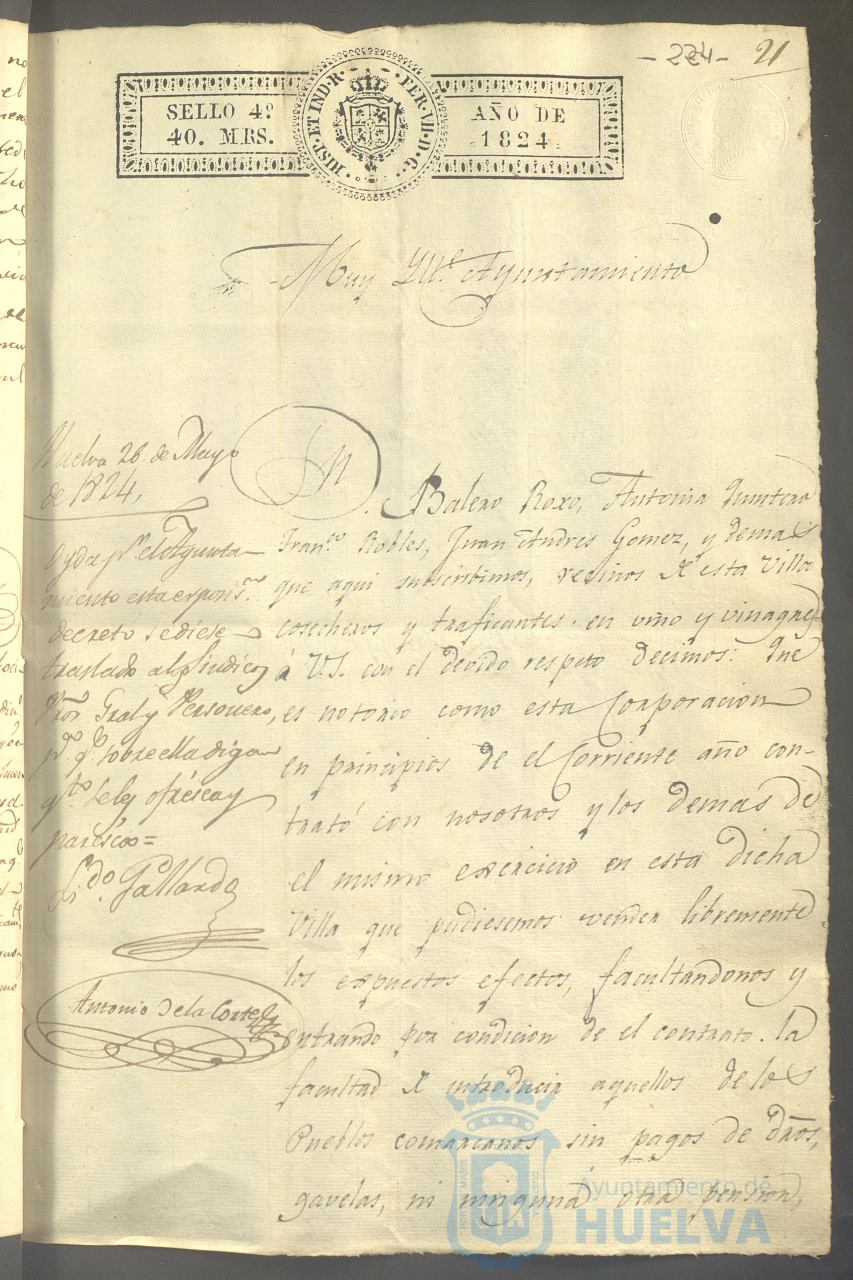 - 224 -
21
SELLO 4º
40. MRS.
HISP. ET IND. R.
FER. VII. D. G.
AÑO DE
1824.
Muy Ille Ayuntamiento
Huelva 26. de Mayo
de 1824,
Oyda pr. el Ayunta-
miento esta exponsn.
decretó se diese
traslado al Sindico
Pror. Gral y Personero,
pa. qe. sobre ella digan
qto. se les ofresca y
paresca=
Ldo. Gallardo
Antonio de la Corte
Balero Roxo, Antonia Quintero
Franco. Robles, Juan Andres Gomez, y demas
que aqui suscribimos, vecinos de esta Villa
cosecheros y traficantes en vino y vinagre,
á V.S. con el devido respeto Decimos: Que
es notorio como esta Corporacion
en principios de el Corriente año con-
trató con nosotros y los demas de
el mismo exercicio en esta dicha
Villa que pudiesemos vender libremente
los expuestos efectos, facultandonos y
entrando por condicion de el contrato la
facultad de introducir aquellos de los
Pueblos comarcanos sin pagos de dros,
gavelas, ni ninguna otra pension,
Ayuntamiento de
HUELVA